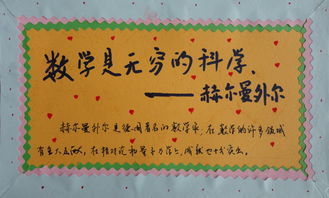 数学是无穷的科学、
——赫尔曼外尔
赫尔曼外尔是德国著名的数学家,在数学的许多领域
有重大贡献,在相对论和量子力学上,成就也十分突出。